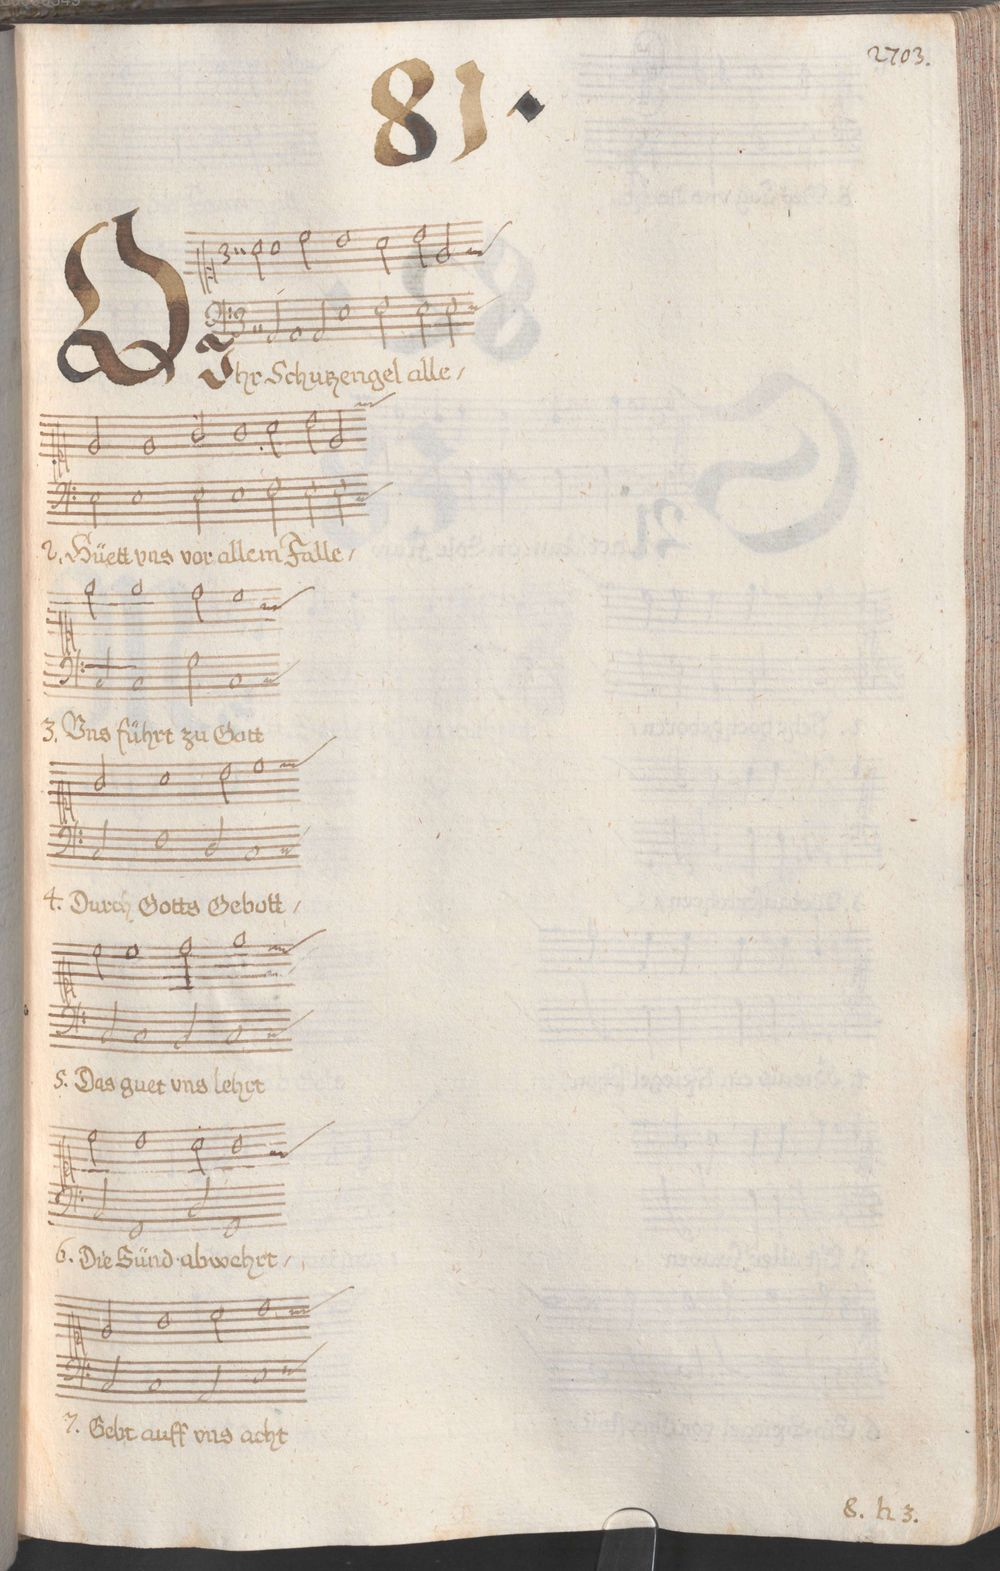 2703.
81.
O Ihr Schutzengel alle /
2. Hüett vns vor allem Falle /
3. Vns führt zu Gott
4. Durch Gotts Gebott /
5. Das guet vns lehrt
6. Die Sünd abwehrt /
7. Gebt auff vns acht
8. h 3.